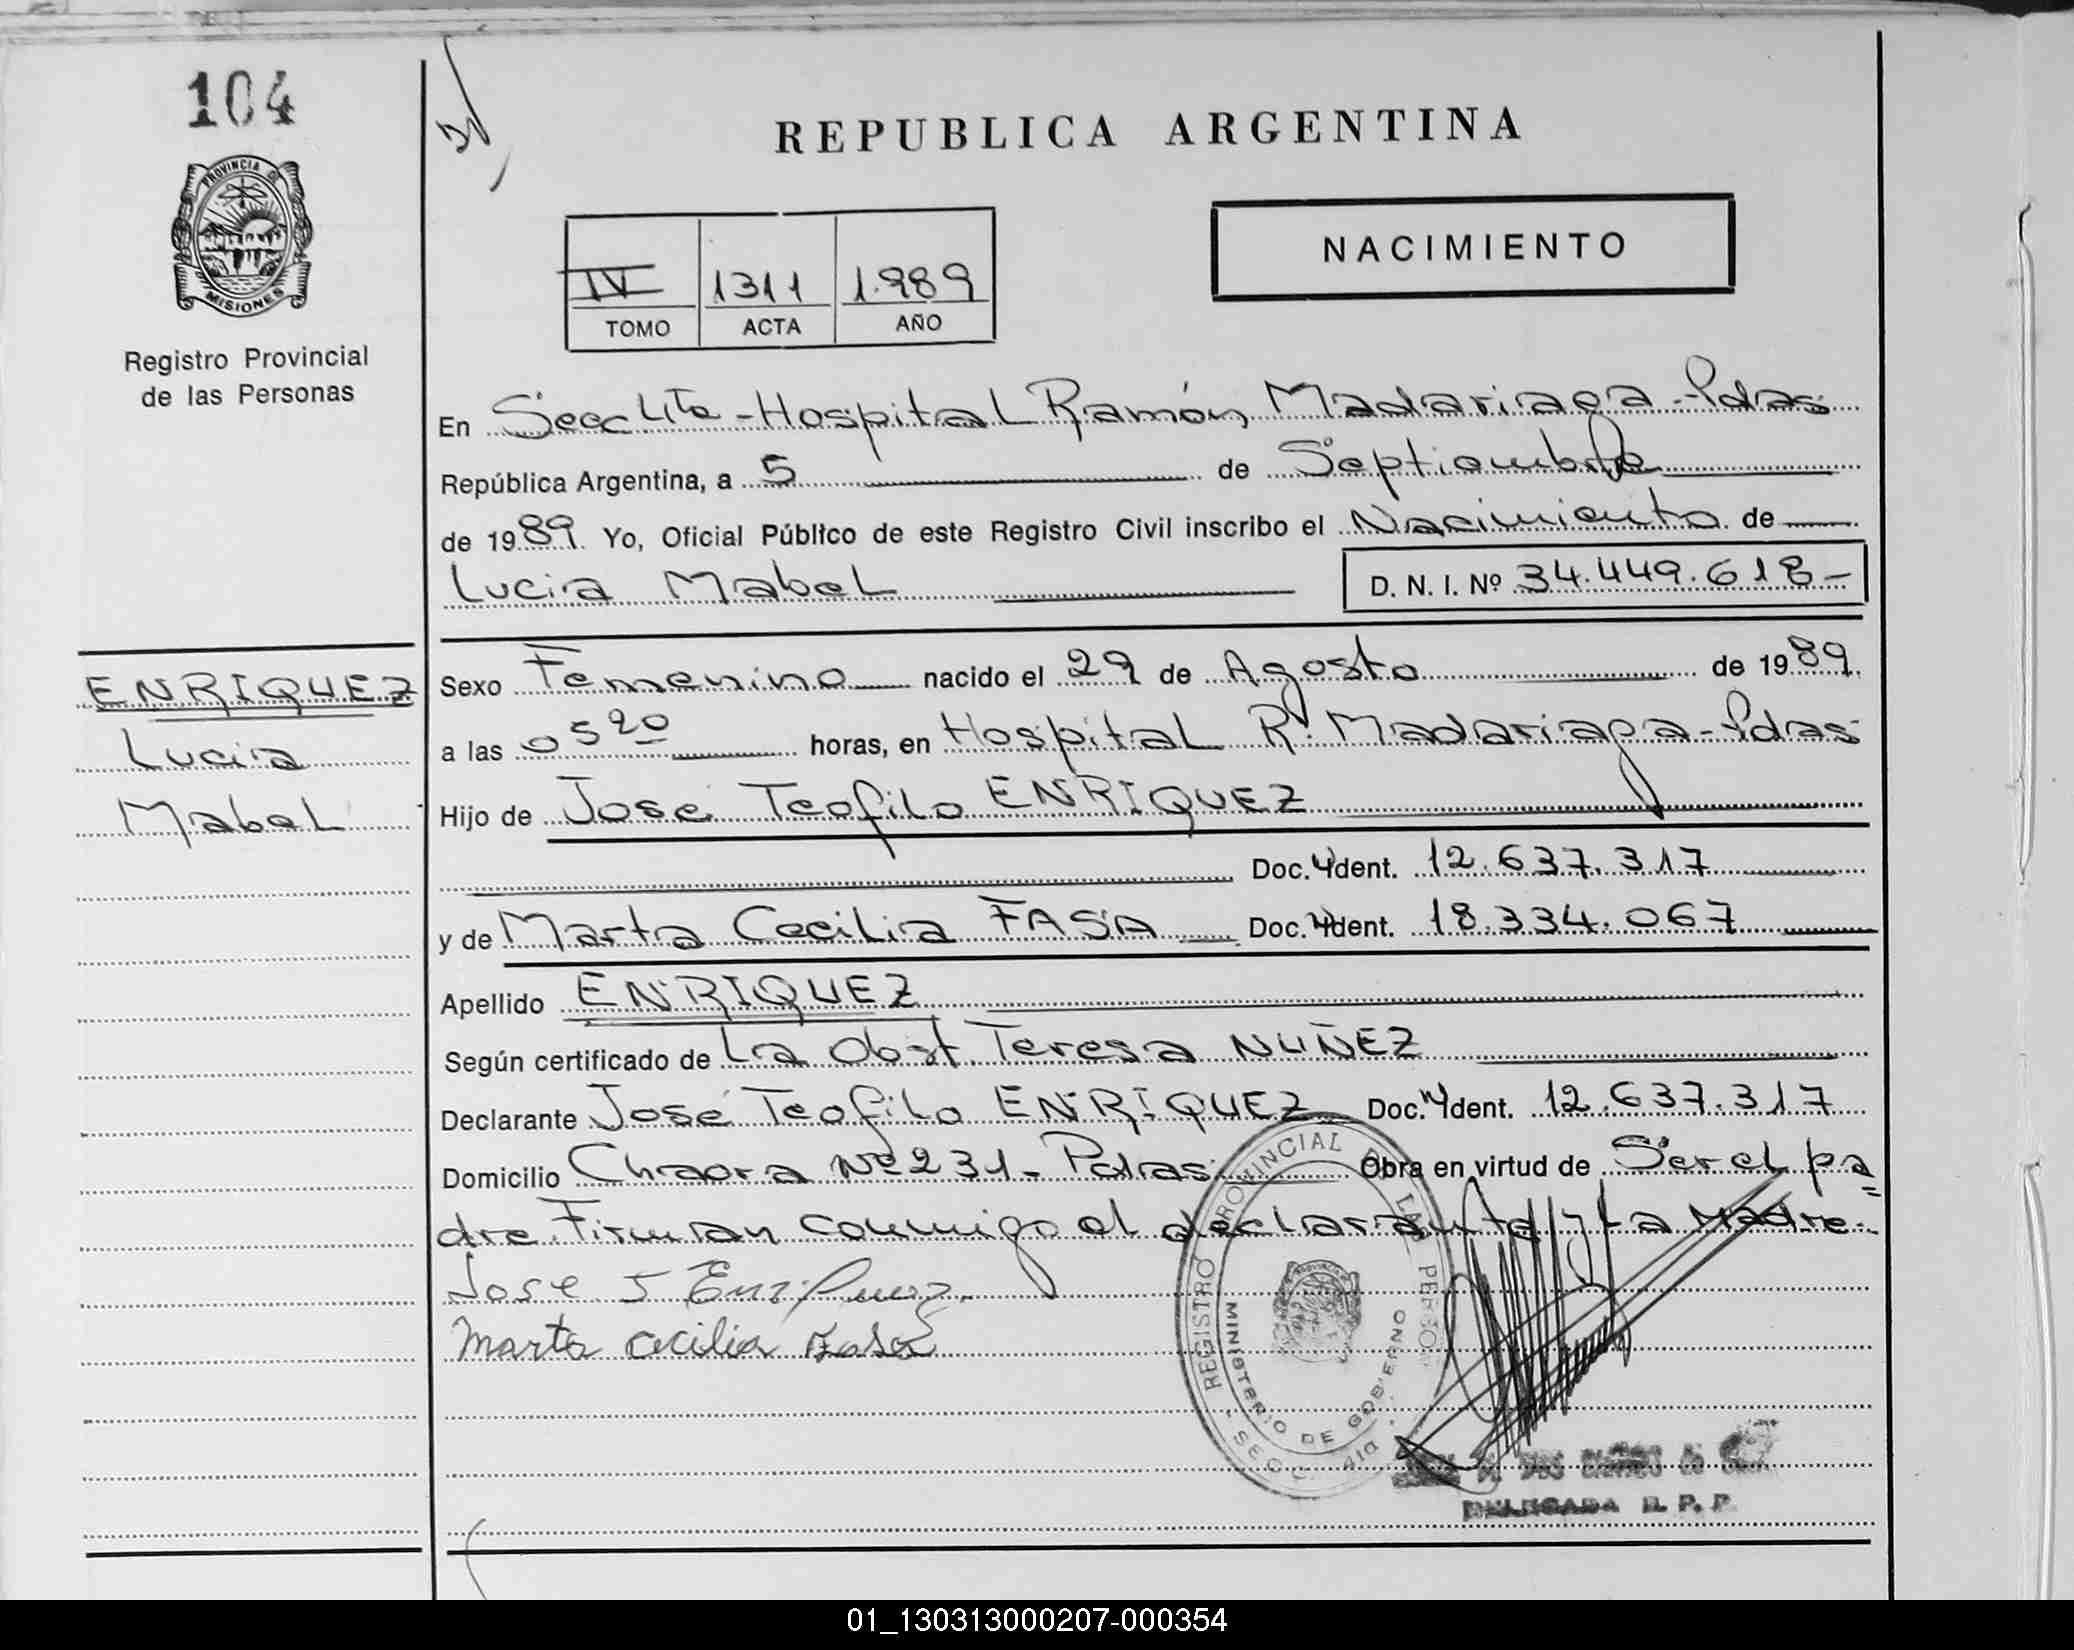 104
PROVINCIA DE
MISIONES
Registro Provincial
de las Personas
REPUBLICA ARGENTINA
NACIMIENTO
IV 1311 1.989
TOMO ACTA AÑO
En Secc 4ta - Hospital Ramón Madariaga - Pdas
República Argentina, a 5 de Septiembre
de 1989. Yo, Oficial Público de este Registro Civil inscribo el Nacimiento de
Lucia Mabel D. N. I. Nº 34.449.618-
ENRIQUEZ
Lucia
Mabel
Sexo Femenino nacido el 29 de Agosto de 1989.
a las 0520 horas, en Hospital R. Madariaga - Pdas
Hijo de José Teofilo ENRIQUEZ
Doc. Ident. 12.637.317
y de Marta Cecilia FASA Doc. Ident. 18.334.067
Apellido ENRIQUEZ
Según certificado de La Obst. Teresa NUÑEZ
Declarante José Teofilo ENRIQUEZ Doc. Ident. 12.637.317
Domicilio Chacra Nº 231 - Pdas Obra en virtud de Ser el pa=
dre. Firman conmigo el declarante y La Madre.-
Jose T Enriquez.
Marta Cecilia Fasa
REGISTRO PROVINCIAL DE LAS PERSONAS
MINISTERIO DE GOBIERNO
SECC. 4ta
DELEGADA R. P. P.
01_130313000207-000354